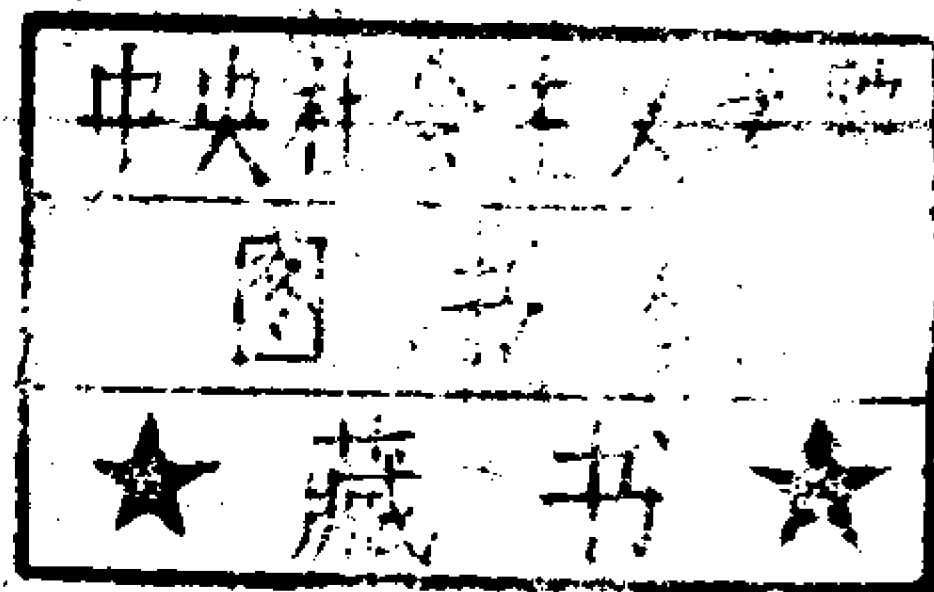 中央社会主义学院
图书
★藏书★